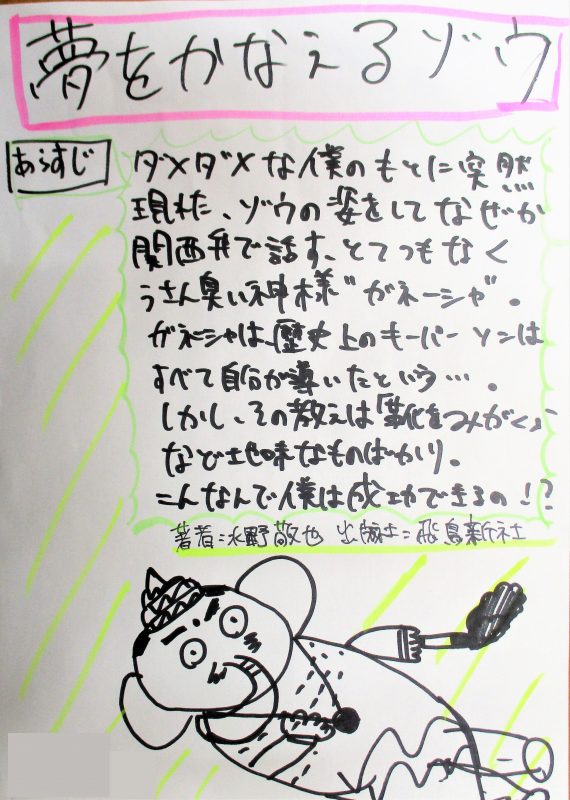 夢をかなえるゾウ
あらすじ
ダメダメな僕のもとに突然
現れた、ゾウの姿をしてなぜか
関西弁で話す、とてつもなく
うさん臭い神様"ガネーシャ"。
ガネーシャは歴史上のキーパーソンは
すべて自分が導いたという…。
しかし、その教えは「靴をみがく」
など地味なものばかり。
こんなんで僕は成功できるの!?
著者=水野敬也 出版社=飛鳥新社